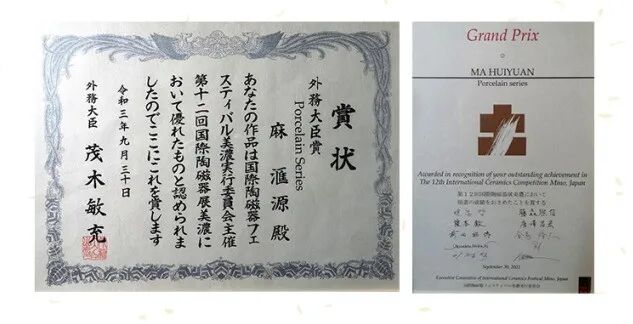 賞状
外務大臣賞
Porcelain Series
麻滙源殿
あなたの作品は国際陶磁器フェ
スティバル美濃実行委員会主催
第十二回国際陶磁器展美濃に
おいて優れたものと認められま
したのでここにこれを賞します
令和三年九月三十日
外務大臣 茂木敏充
Grand Prix
MA HUIYUAN
Porcelain series
Awarded in recognition of your outstanding achievement in
The 12th International Ceramics Competition Mino, Japan
第12回国際陶磁器展美濃において
頭書の成績をおさめたことを賞する
September 30, 2021
Executive Committee of International Ceramics Festival Mino, Japan
国際陶磁器フェスティバル美濃実行委員会